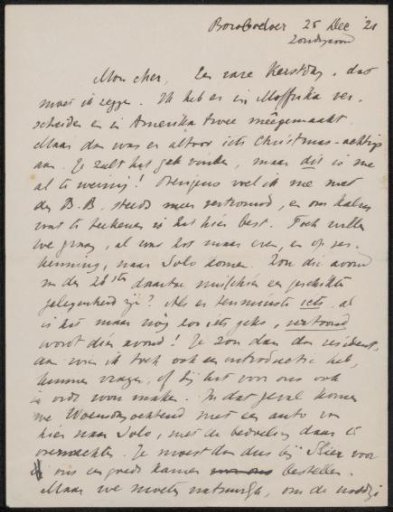 Boroboedoer 25 Dec '21
Zondagavond
Mon cher, Een rare Kerstdag, dat
moet ik zeggen. Ik heb er in Moffrika ver-
scheiden en in Amerika twee meêgemaakt.
Maar dan was er altoos iets Christmas-achtigs
aan. Je zult het gek vinden, maar dit is me
al te weinig! Overigens voel ik me met
den B.B. steeds meer vertrouwd, en om
wat te teekenen is het hier best. Toch willen
we graag, al was het maar even, en op ver-
kenning, naar Solo komen. Zou die avond
van den 28sten daartoe misschien een geschikte
gelegenheid zijn? Als er tenminste iets, al
is het maar nòg zoo iets geks, vertoond
wordt dien avond! Je zou dan den resident,
aan wien ik toch ook een introductie heb,
kunnen vragen, of hij het voor ons ook
in orde wou maken. In dat geval komen
we Woensdagochtend met een auto van
hier naar Solo, met de bedoeling daar te
overnachten. Je moest dan dus bij Slier voor
ons een goede kamer bestellen.
Maar we moeten natuurlijk, om de